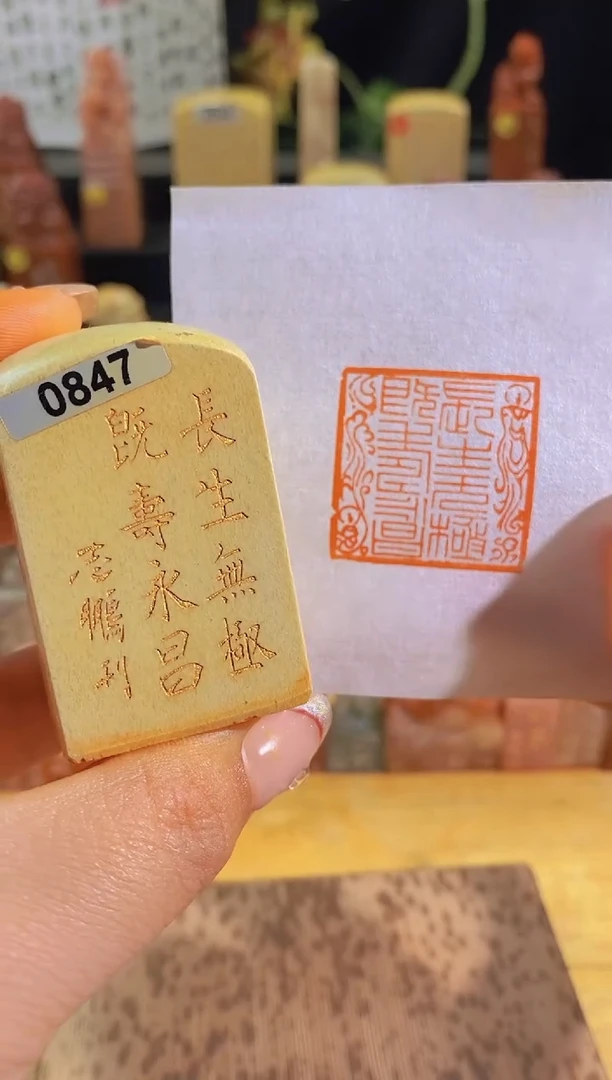 0847
長生無極
既壽永昌
志鵬刻
長生無極
既壽永昌